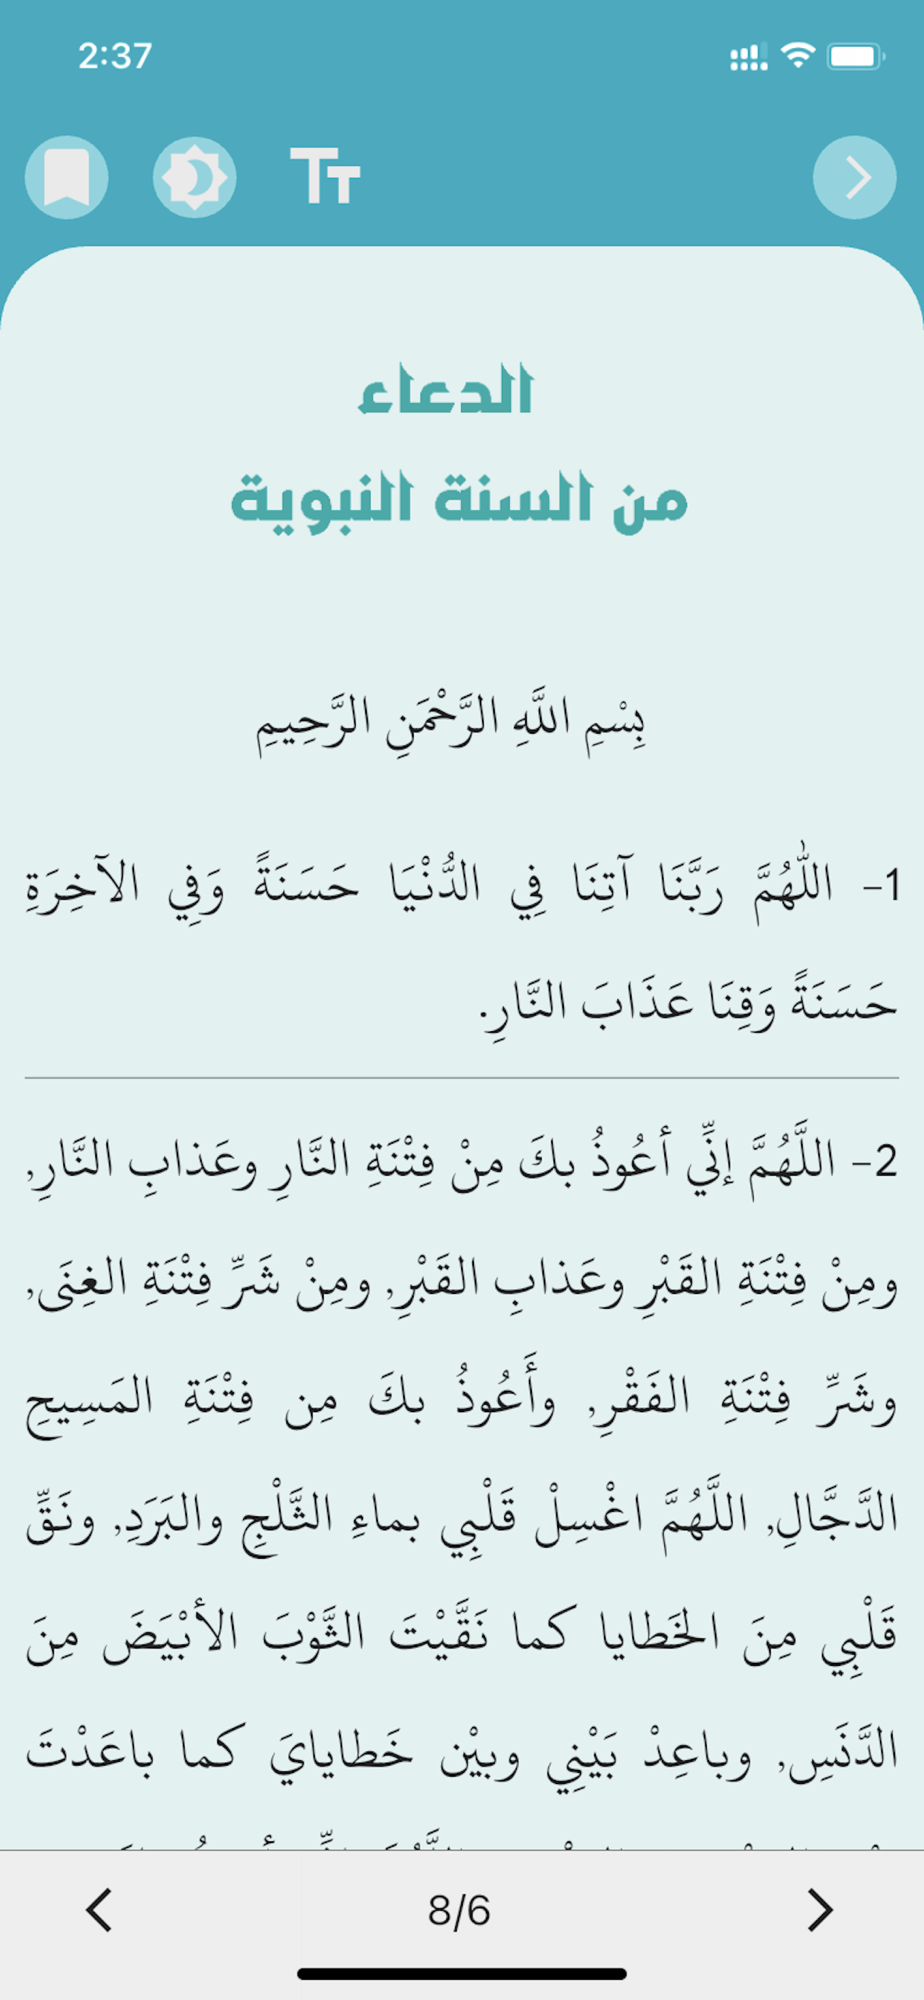 2:37
الدعاء
من السنة النبوية
بِسْمِ اللَّهِ الرَّحْمَنِ الرَّحِيمِ
1- اللّٰهُمَّ رَبَّنَا آتِنَا فِي الدُّنْيَا حَسَنَةً وَفِي الآخِرَةِ
حَسَنَةً وَقِنَا عَذَابَ النَّارِ.
2- اللَّهُمَّ إنِّي أعُوذُ بكَ مِنْ فِتْنَةِ النَّارِ وعَذابِ النَّارِ,
ومِنْ فِتْنَةِ القَبْرِ وعَذابِ القَبْرِ, ومِنْ شَرِّ فِتْنَةِ الغِنَى,
وشَرِّ فِتْنَةِ الفَقْرِ, وأَعُوذُ بكَ مِن فِتْنَةِ المَسِيحِ
الدَّجَّالِ, اللَّهُمَّ اغْسِلْ قَلْبِي بماءِ الثَّلْجِ والبَرَدِ, ونَقِّ
قَلْبِي مِنَ الخَطايا كما نَقَّيْتَ الثَّوْبَ الأبْيَضَ مِنَ
الدَّنَسِ, وباعِدْ بَيْنِي وبيْن خَطايايَ كما باعَدْتَ
8/6